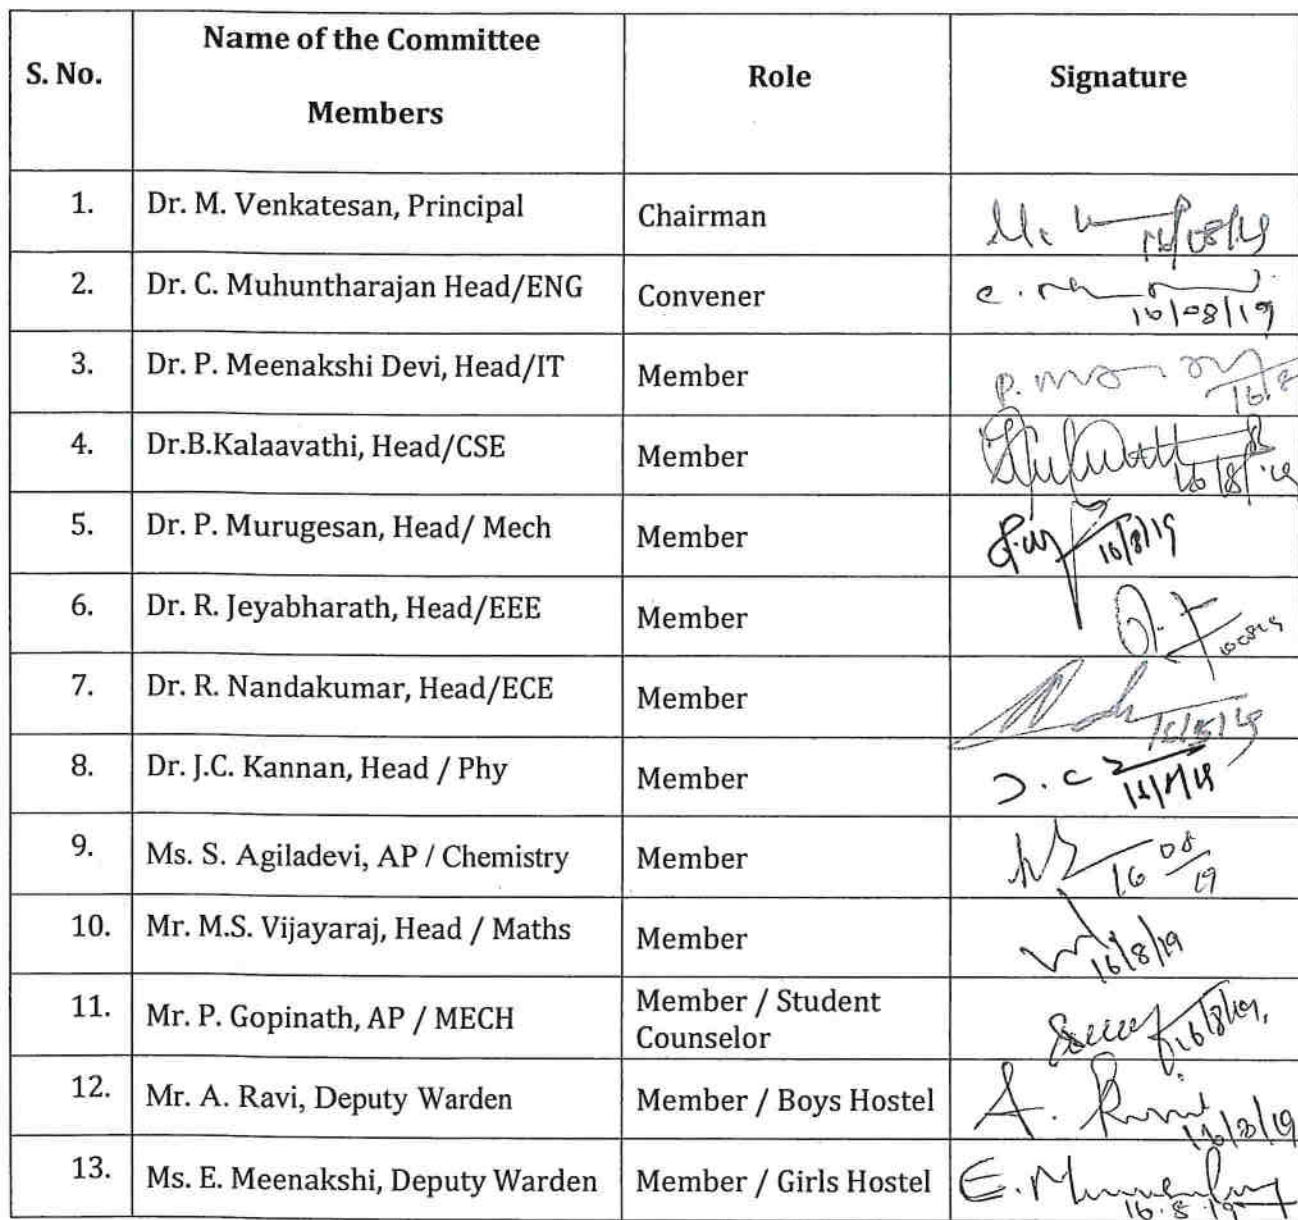 S. No. Name of the Committee Members Role Signature
1. Dr. M. Venkatesan, Principal Chairman 16/08/19
2. Dr. C. Muhuntharajan Head/ENG Convener 16/08/19
3. Dr. P. Meenakshi Devi, Head/IT Member 16/8
4. Dr.B.Kalaavathi, Head/CSE Member 16/8/19
5. Dr. P. Murugesan, Head/ Mech Member 16/8/19
6. Dr. R. Jeyabharath, Head/EEE Member
7. Dr. R. Nandakumar, Head/ECE Member 16/8/19
8. Dr. J.C. Kannan, Head / Phy Member J. C
9. Ms. S. Agiladevi, AP / Chemistry Member 16 08/19
10. Mr. M.S. Vijayaraj, Head / Maths Member 16/8/19
11. Mr. P. Gopinath, AP / MECH Member / Student Counselor 16/8/19
12. Mr. A. Ravi, Deputy Warden Member / Boys Hostel A. Ravi 16/8/19
13. Ms. E. Meenakshi, Deputy Warden Member / Girls Hostel E. Meenakshi 16.8.19